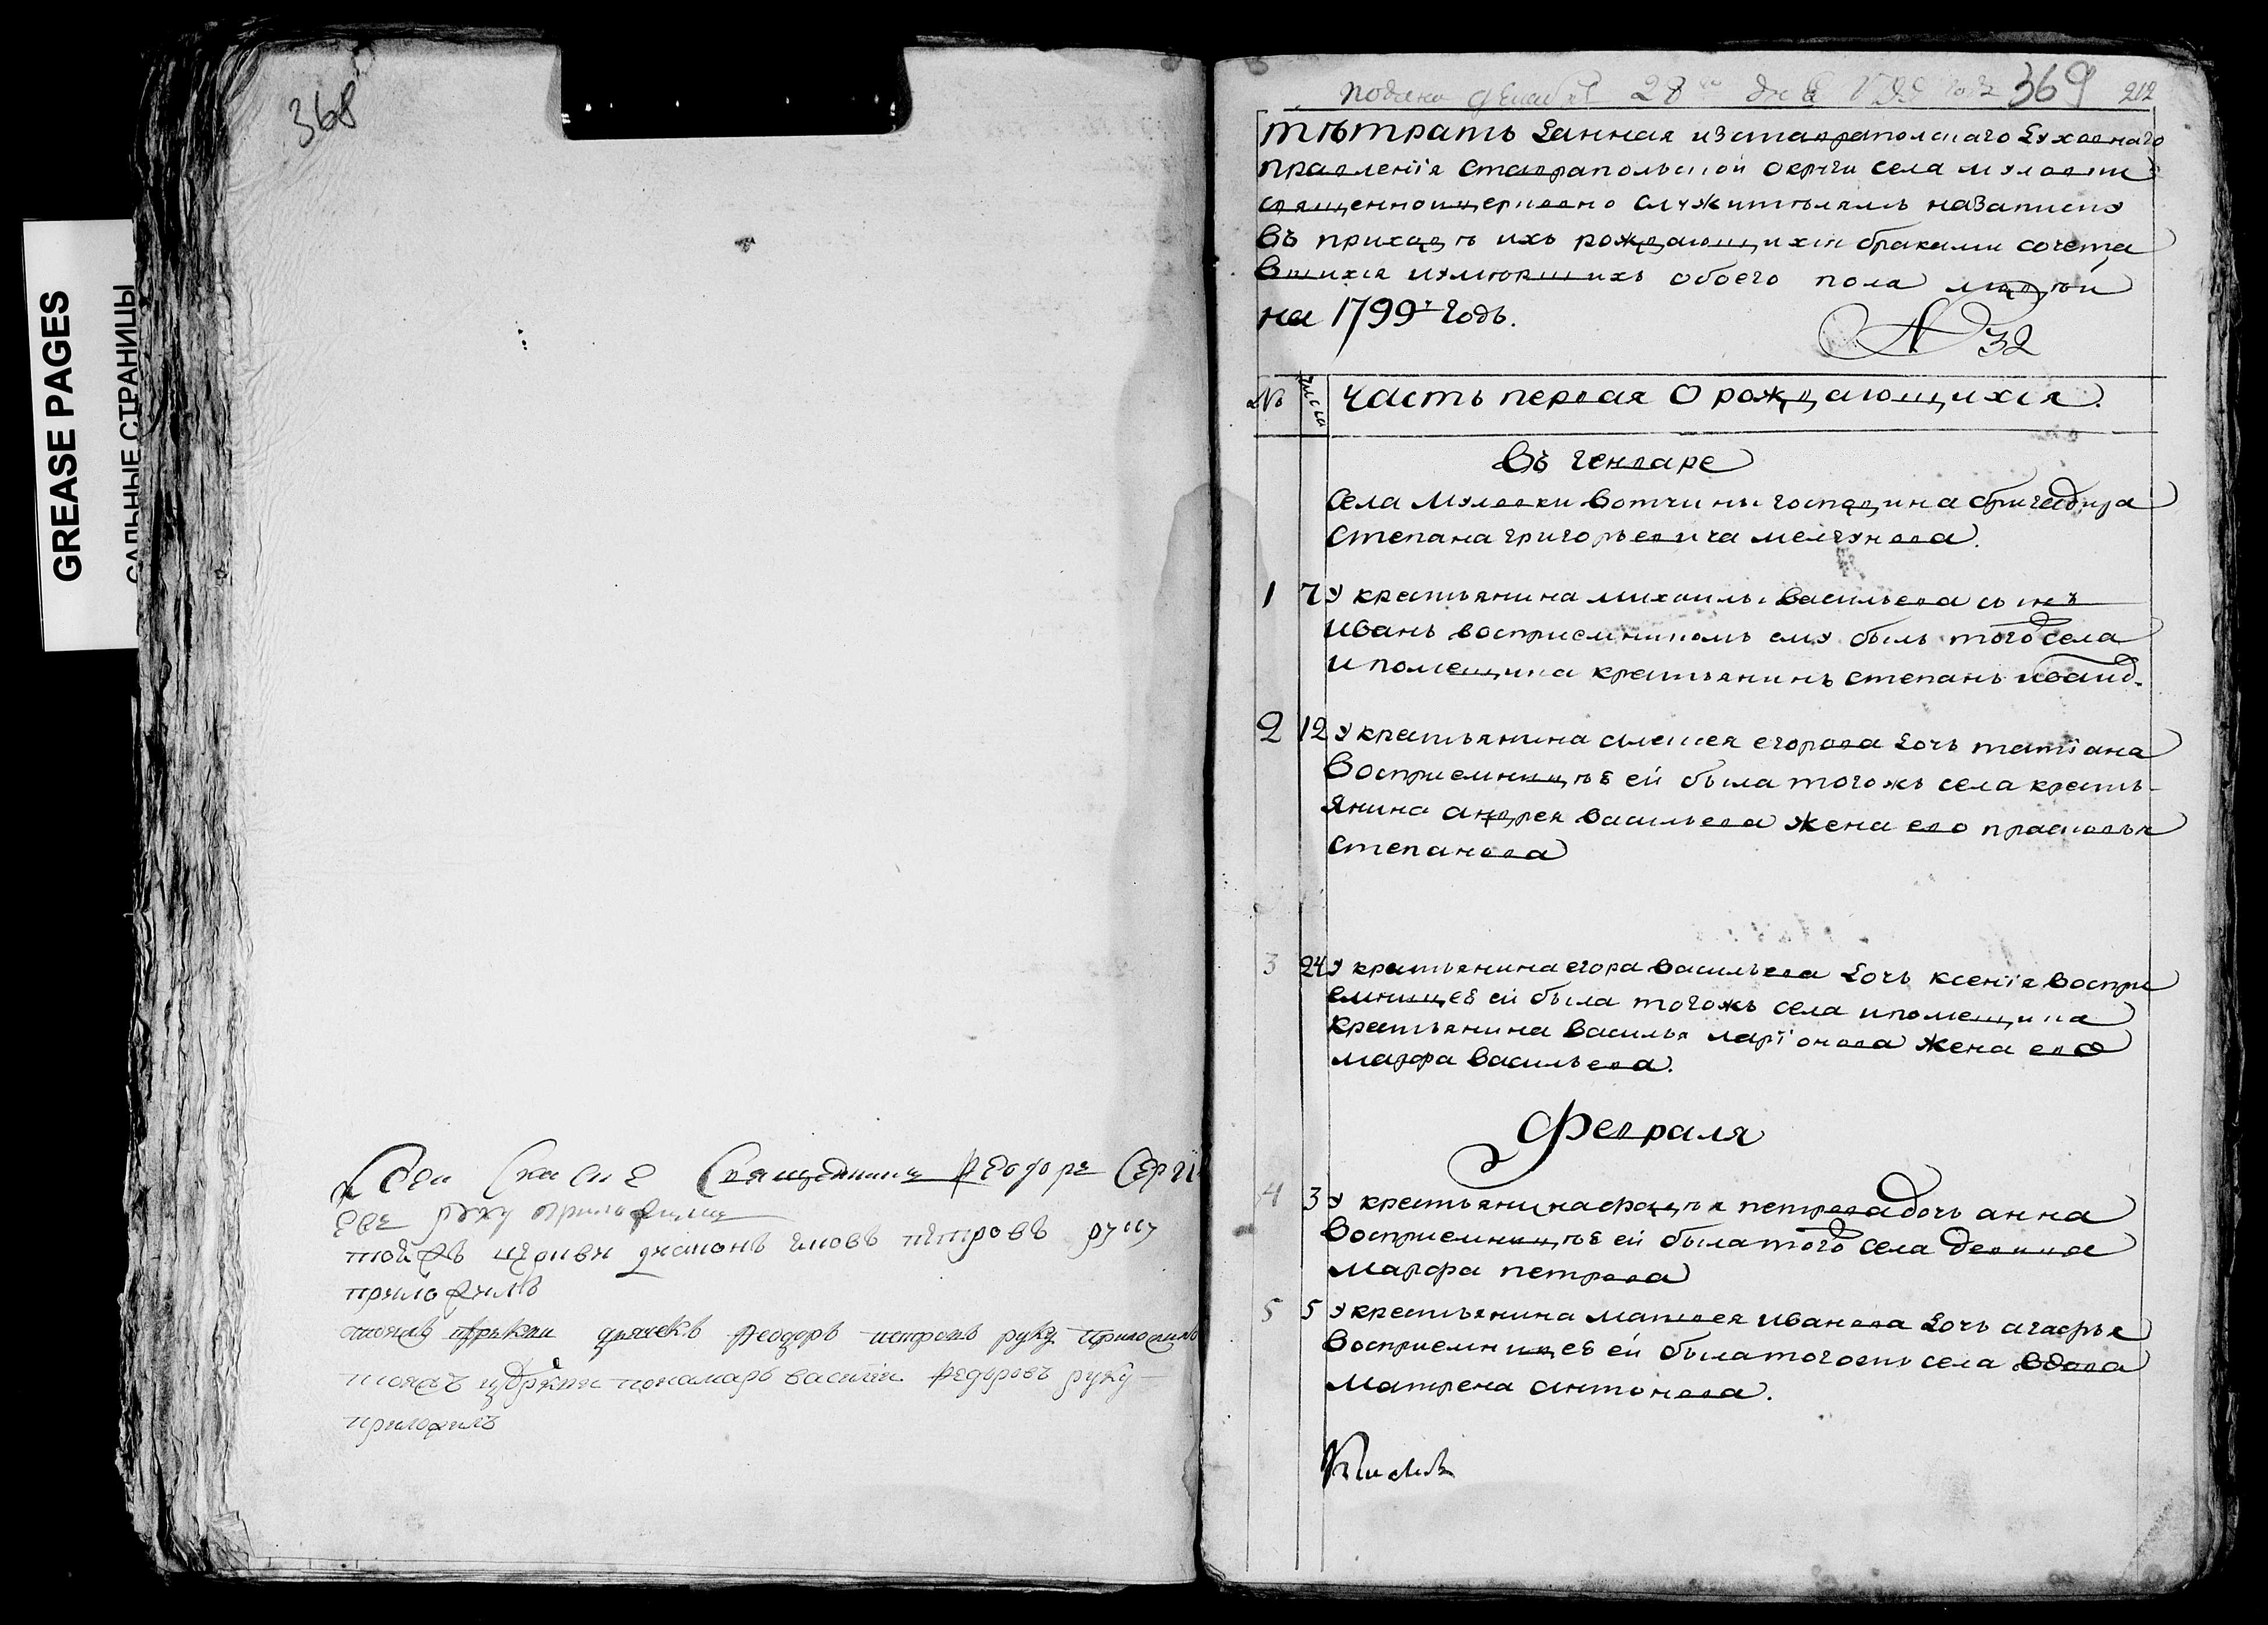 GREASE PAGES
САЛЬНЫЕ СТРАНИЦЫ
368
Священникъ Ѳеодоръ Сергі
евъ руку приложилъ
тойжъ церкви диаконъ петровъ руку
приложилъ
тояжъ церкви дьячекъ Ѳеодоръ петровъ руку приложилъ
тояжъ церкви понамарь василей Ѳедоровъ руку
приложилъ
подана 28 го 369 212
тѣтрать данная изставрапольскаго духовнаго
правленїя ставрапольской округи села муловки
священноцерковно служителямъ назаписку
въ приходѣ ихъ рождающихся браками сочета
вшихся иумюршихъ обоего пола людѣй
на 1799й годъ.
№ 32
№ числа часть первая О рождающихся.
Въ генваре
Села муловки вотчины господина бригадира
степана григорьевича мелгунова.
1 7 у крестьянина михаилы васильева сынъ
иванъ восприемникомъ ему былъ тогожъ села
и помещика крестьянинъ степанъ ивановъ.
2 12 у крестьянина алексея егорова дочь татїана
Восприемницѣю ей была тогожъ села кресть-
янина андрея васильева жена ево прасковья
степанова
3 24 у крестьянина егора васильева дочь ксенїя воспри
емницею ей была тогожъ села ипомещика
крестьянина василья ларїонова жена ево
марфа васильева.
Февраля
4 3 у крестьянина фадѣя петрова дочь анна
восприемницѣю ей была тогожъ села девица
марфа петрова
5 5 у крестьянина матвея иванова дочь агафья
восприемницею ей была тогожъ села вдова
матрена антонова.